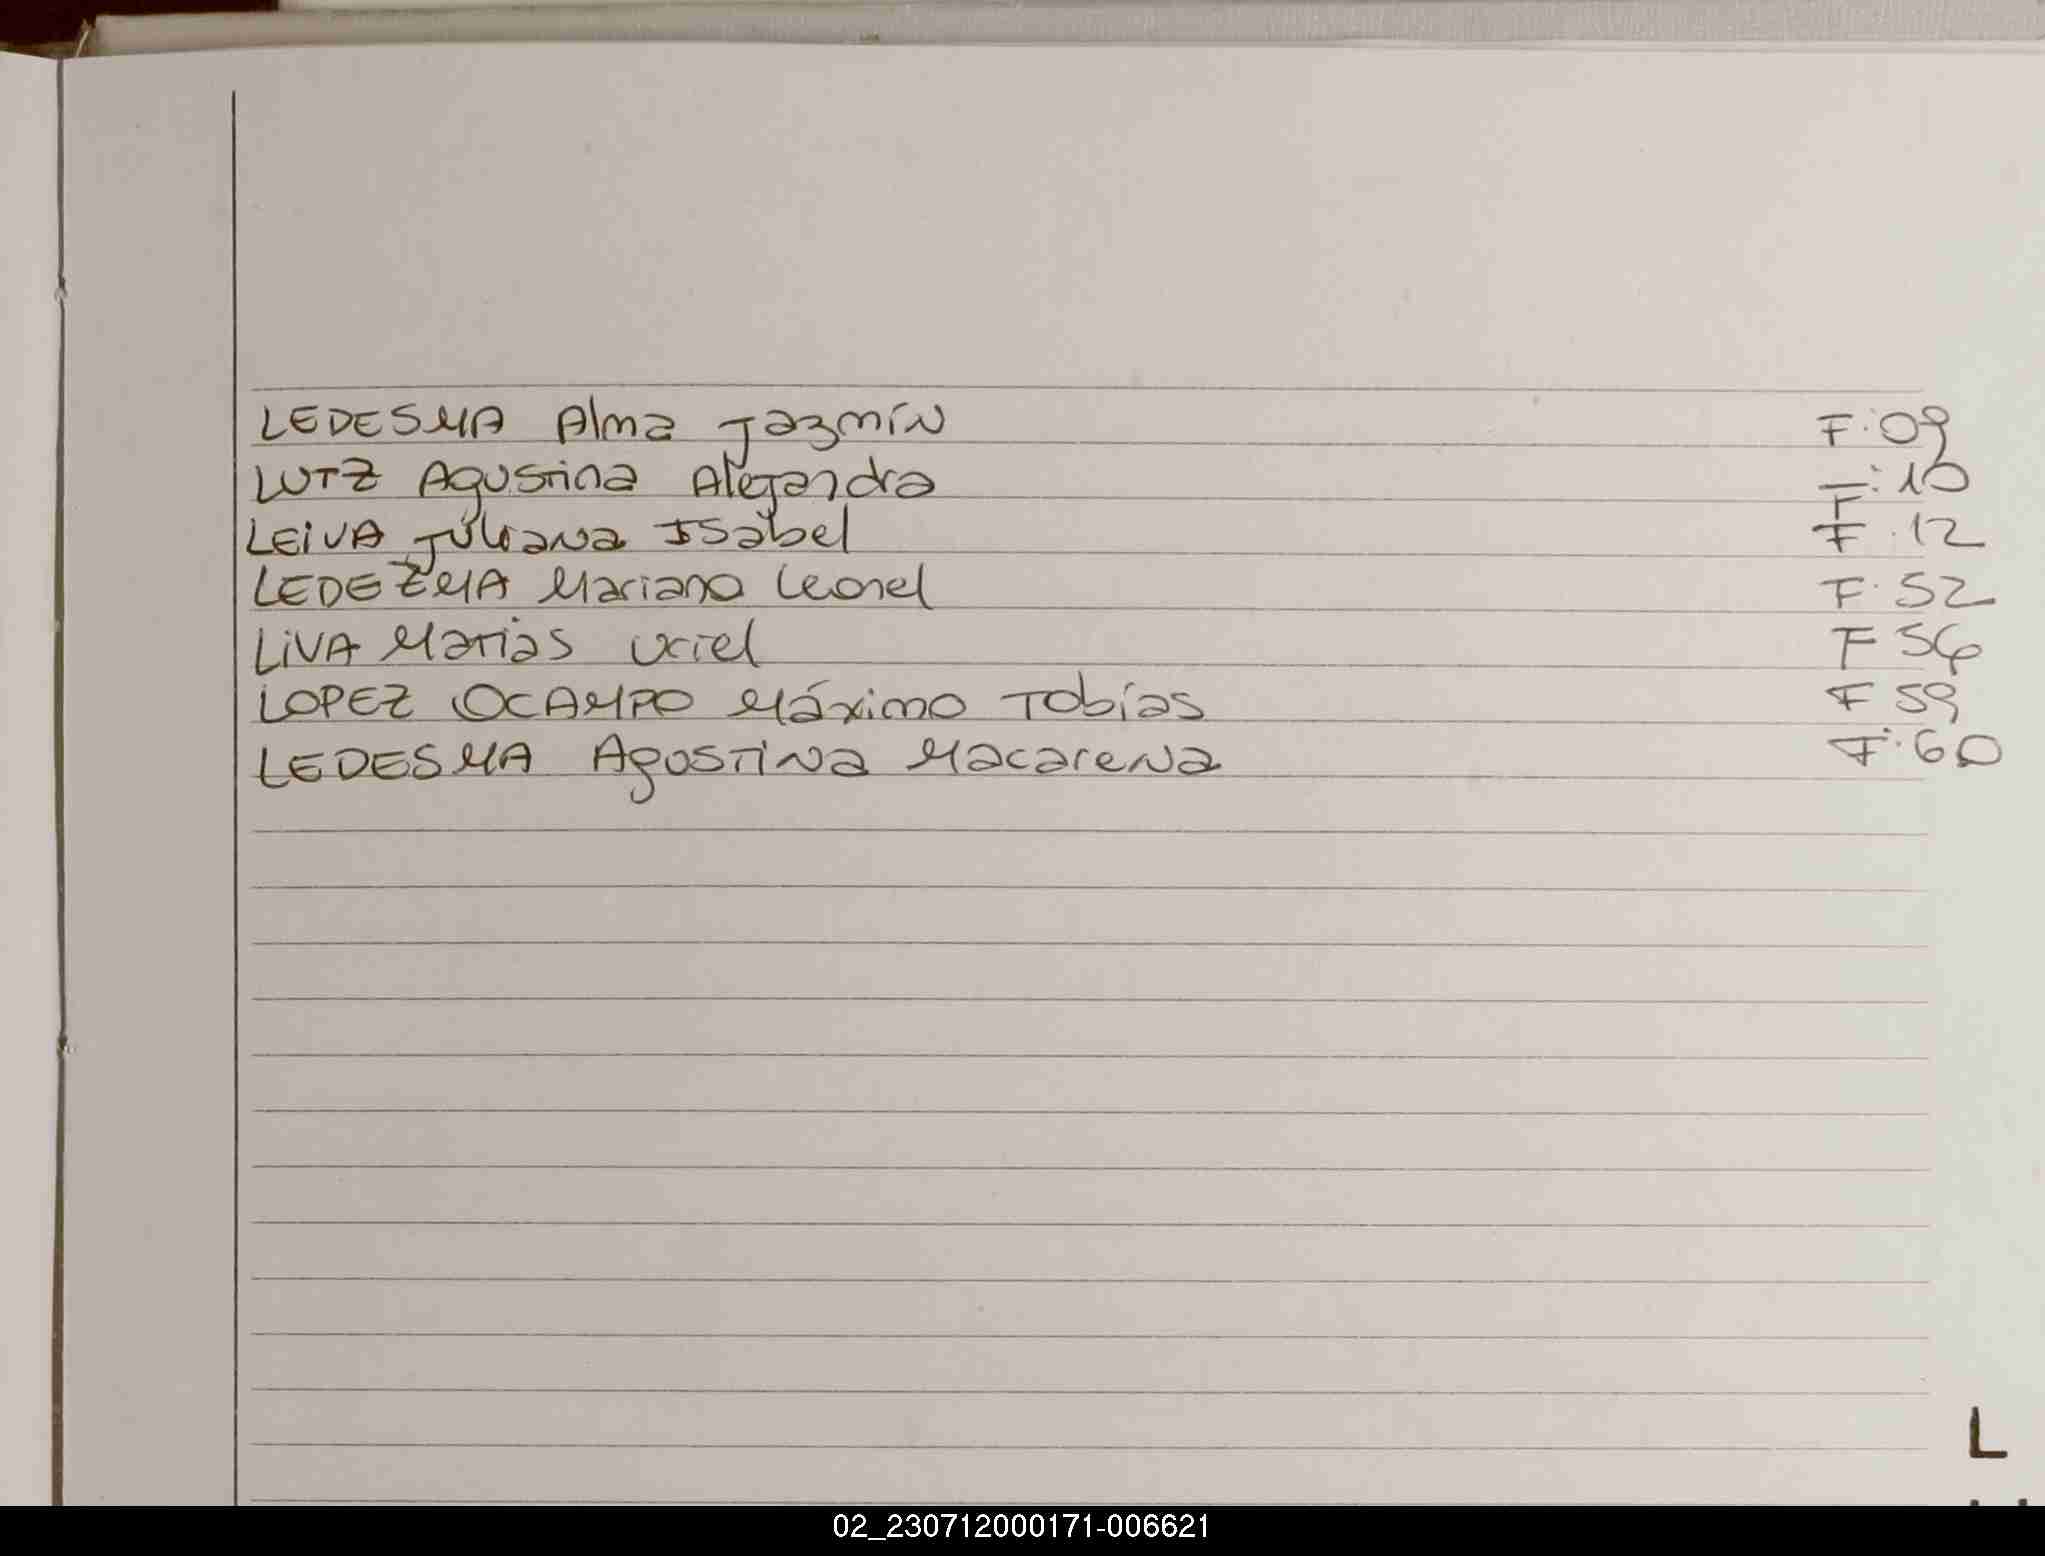 LEDESMA Alma Jazmín F:09
LUTZ Agustina Alejandra F:10
LEiVA Juliana Isabel F.12
LEDEZMA Mariano Leonel F.52
LiVA Matías Uriel F 56
LOPEZ OCAMPO Máximo Tobías F 59
LEDESMA Agostina Macarena F:60
L
02_230712000171-006621